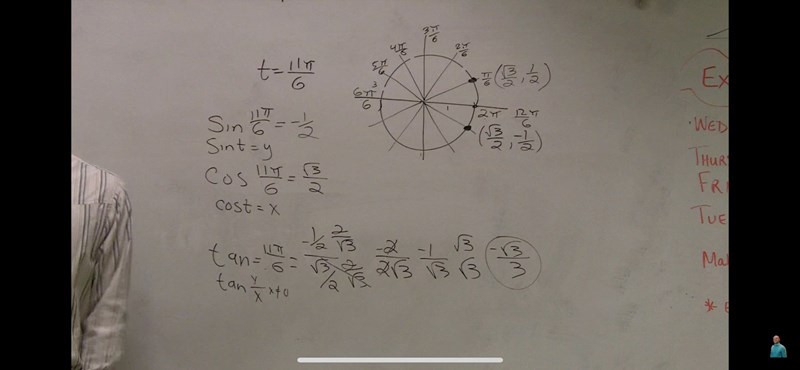 t = 11π/6
6π/6
5π/6
4π/6
3π/6
2π/6
π/6 (√3/2, 1/2)
2π 12π/6
(√3/2, -1/2)
Sin 11π/6 = -1/2
Sin t = y
Cos 11π/6 = √3/2
cos t = x
tan = 11π/6 = -1/2 2/√3 / √3/2 2/√3 -2/2√3 -1/√3 √3/√3 -√3/3
tan y/x x≠0
Ex
WED
THUR
FRI
TUE
Ma